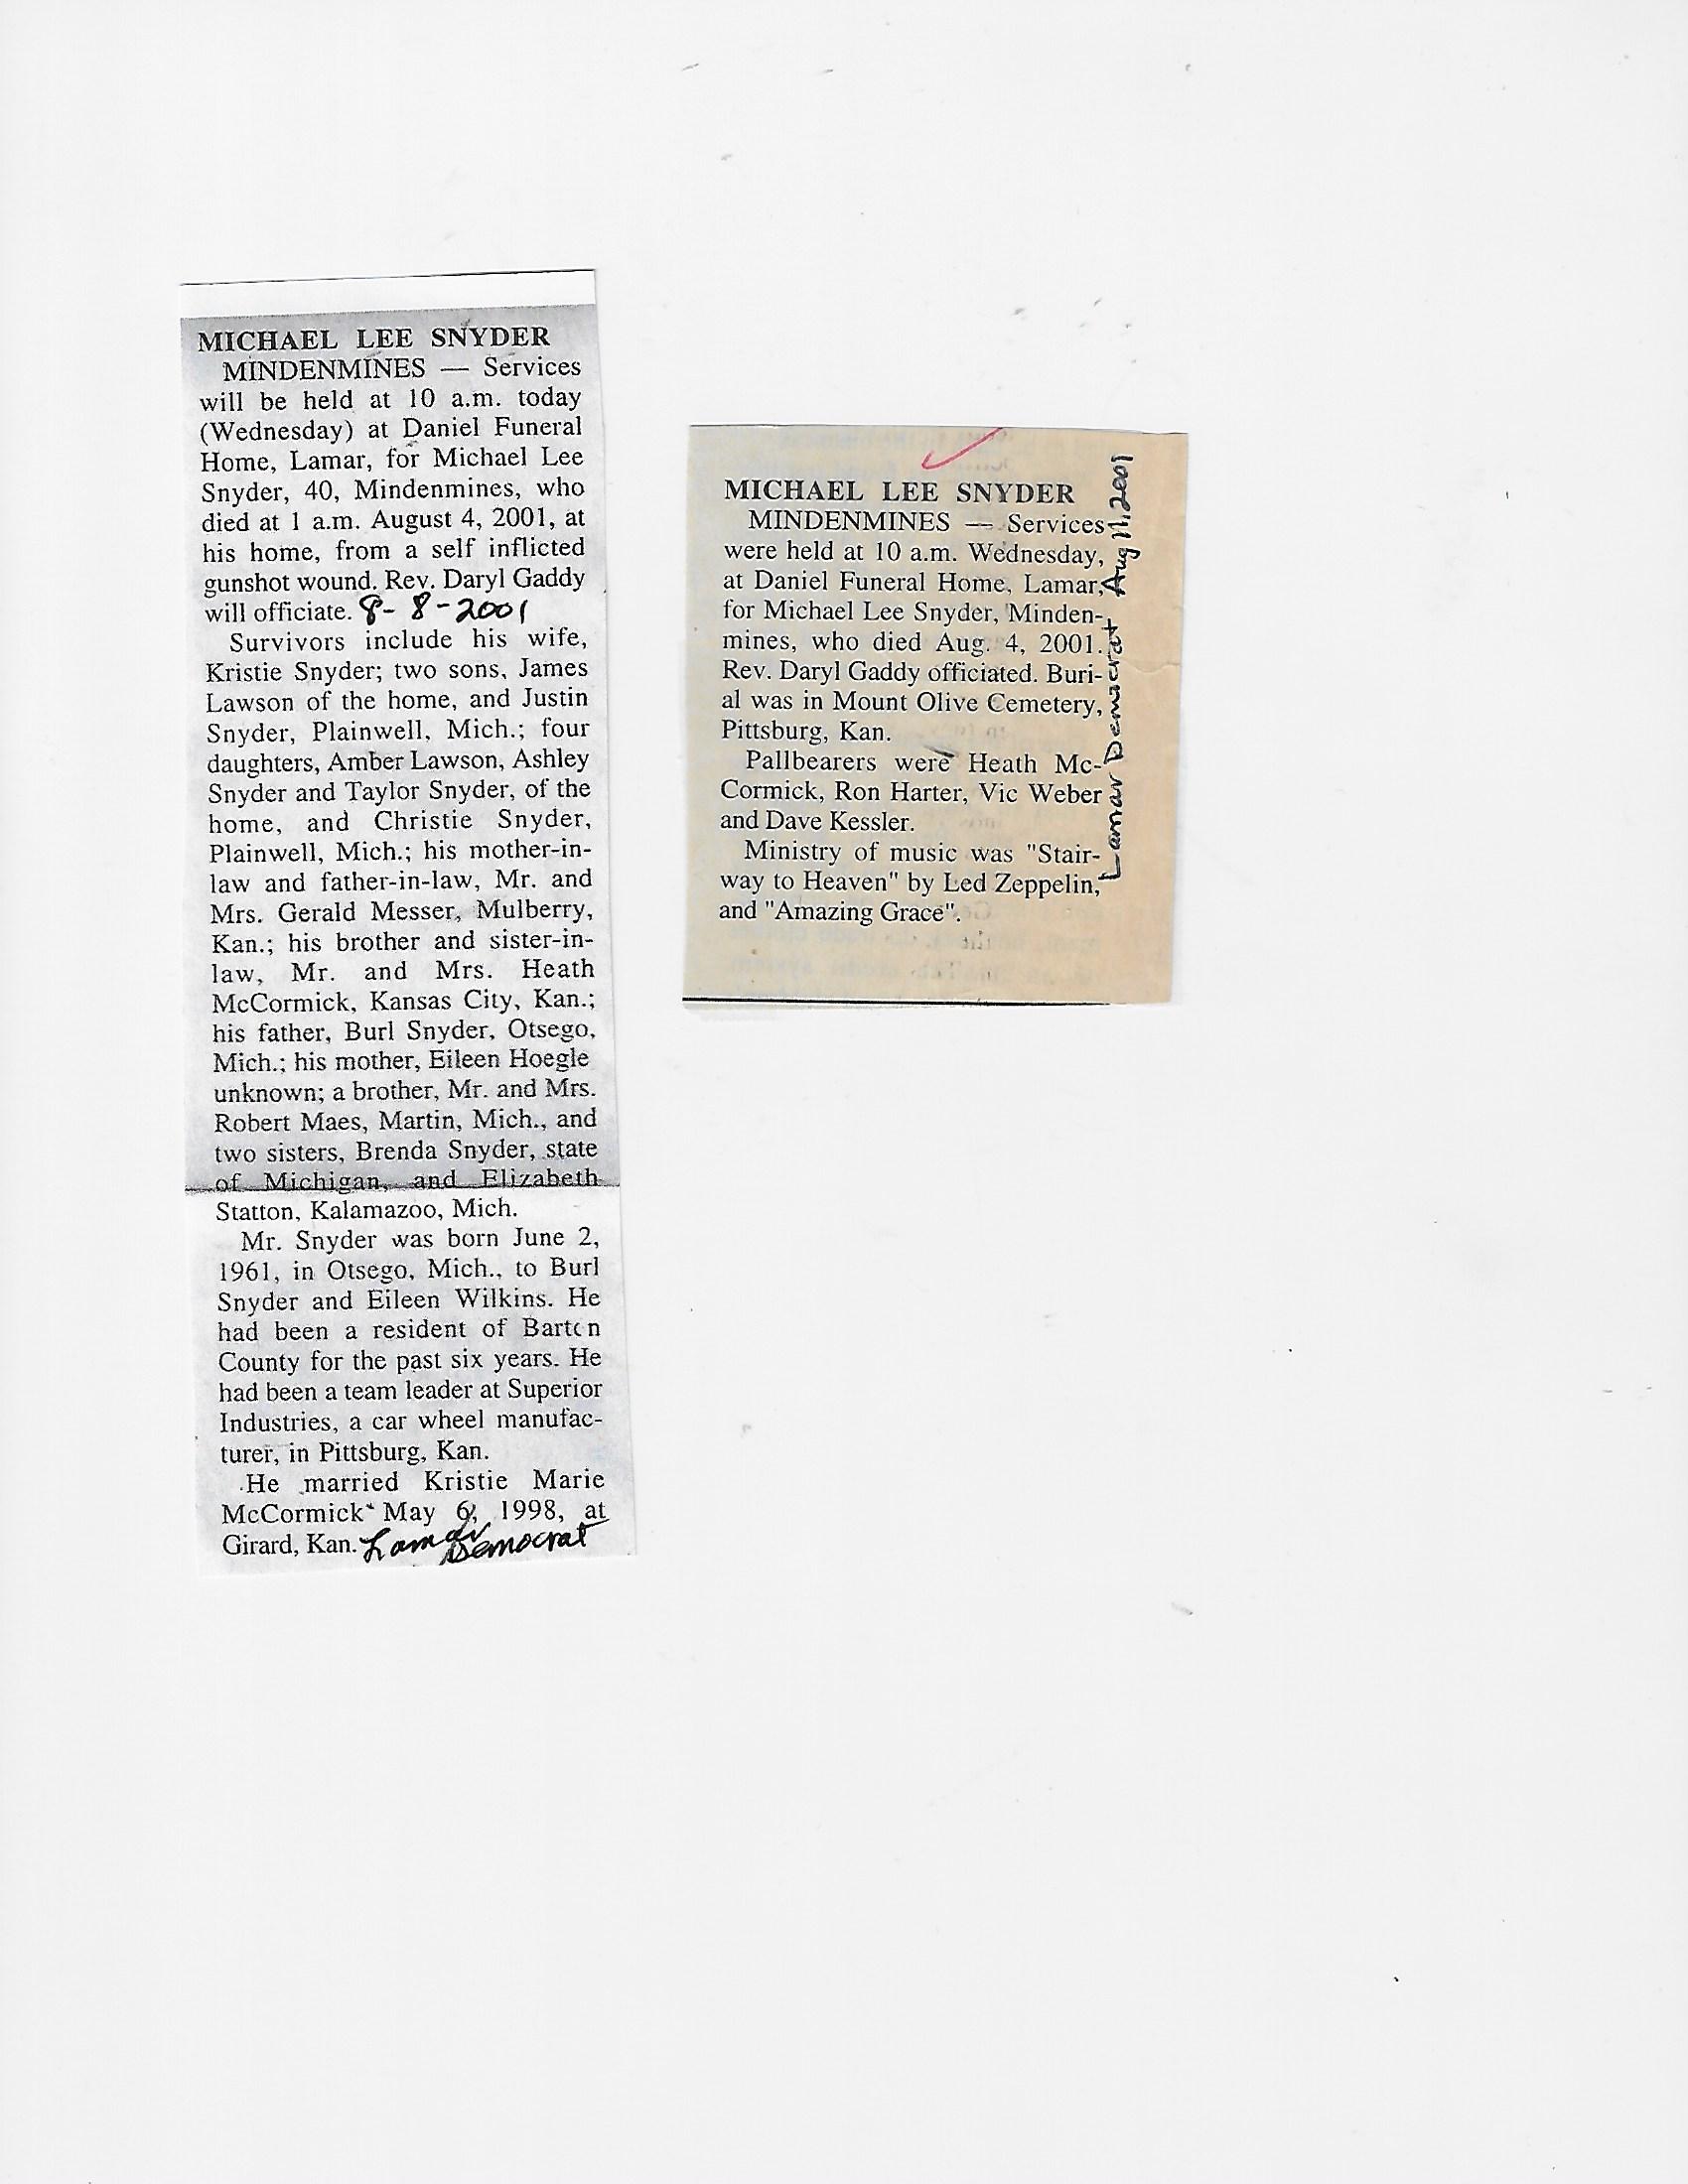 MICHAEL LEE SNYDER
MINDENMINES — Services
will be held at 10 a.m. today
(Wednesday) at Daniel Funeral
Home, Lamar, for Michael Lee
Snyder, 40, Mindenmines, who
died at 1 a.m. August 4, 2001, at
his home, from a self inflicted
gunshot wound. Rev. Daryl Gaddy
will officiate. 8-8-2001
Survivors include his wife,
Kristie Snyder; two sons, James
Lawson of the home, and Justin
Snyder, Plainwell, Mich.; four
daughters, Amber Lawson, Ashley
Snyder and Taylor Snyder, of the
home, and Christie Snyder,
Plainwell, Mich.; his mother-in-
law and father-in-law, Mr. and
Mrs. Gerald Messer, Mulberry,
Kan.; his brother and sister-in-
law, Mr. and Mrs. Heath
McCormick, Kansas City, Kan.;
his father, Burl Snyder, Otsego,
Mich.; his mother, Eileen Hoegle
unknown; a brother, Mr. and Mrs.
Robert Maes, Martin, Mich., and
two sisters, Brenda Snyder, state
of Michigan, and Elizabeth
Statton, Kalamazoo, Mich.
Mr. Snyder was born June 2,
1961, in Otsego, Mich., to Burl
Snyder and Eileen Wilkins. He
had been a resident of Barton
County for the past six years. He
had been a team leader at Superior
Industries, a car wheel manufac-
turer, in Pittsburg, Kan.
He married Kristie Marie
McCormick May 6, 1998, at
Girard, Kan. Lamar
Democrat
MICHAEL LEE SNYDER
MINDENMINES — Services
were held at 10 a.m. Wednesday,
at Daniel Funeral Home, Lamar,
for Michael Lee Snyder, Minden-
mines, who died Aug. 4, 2001.
Rev. Daryl Gaddy officiated. Buri-
al was in Mount Olive Cemetery,
Pittsburg, Kan.
Pallbearers were Heath Mc-
Cormick, Ron Harter, Vic Weber
and Dave Kessler.
Ministry of music was "Stair-
way to Heaven" by Led Zeppelin,
and "Amazing Grace".
Lamar Democrat Aug 11, 2001